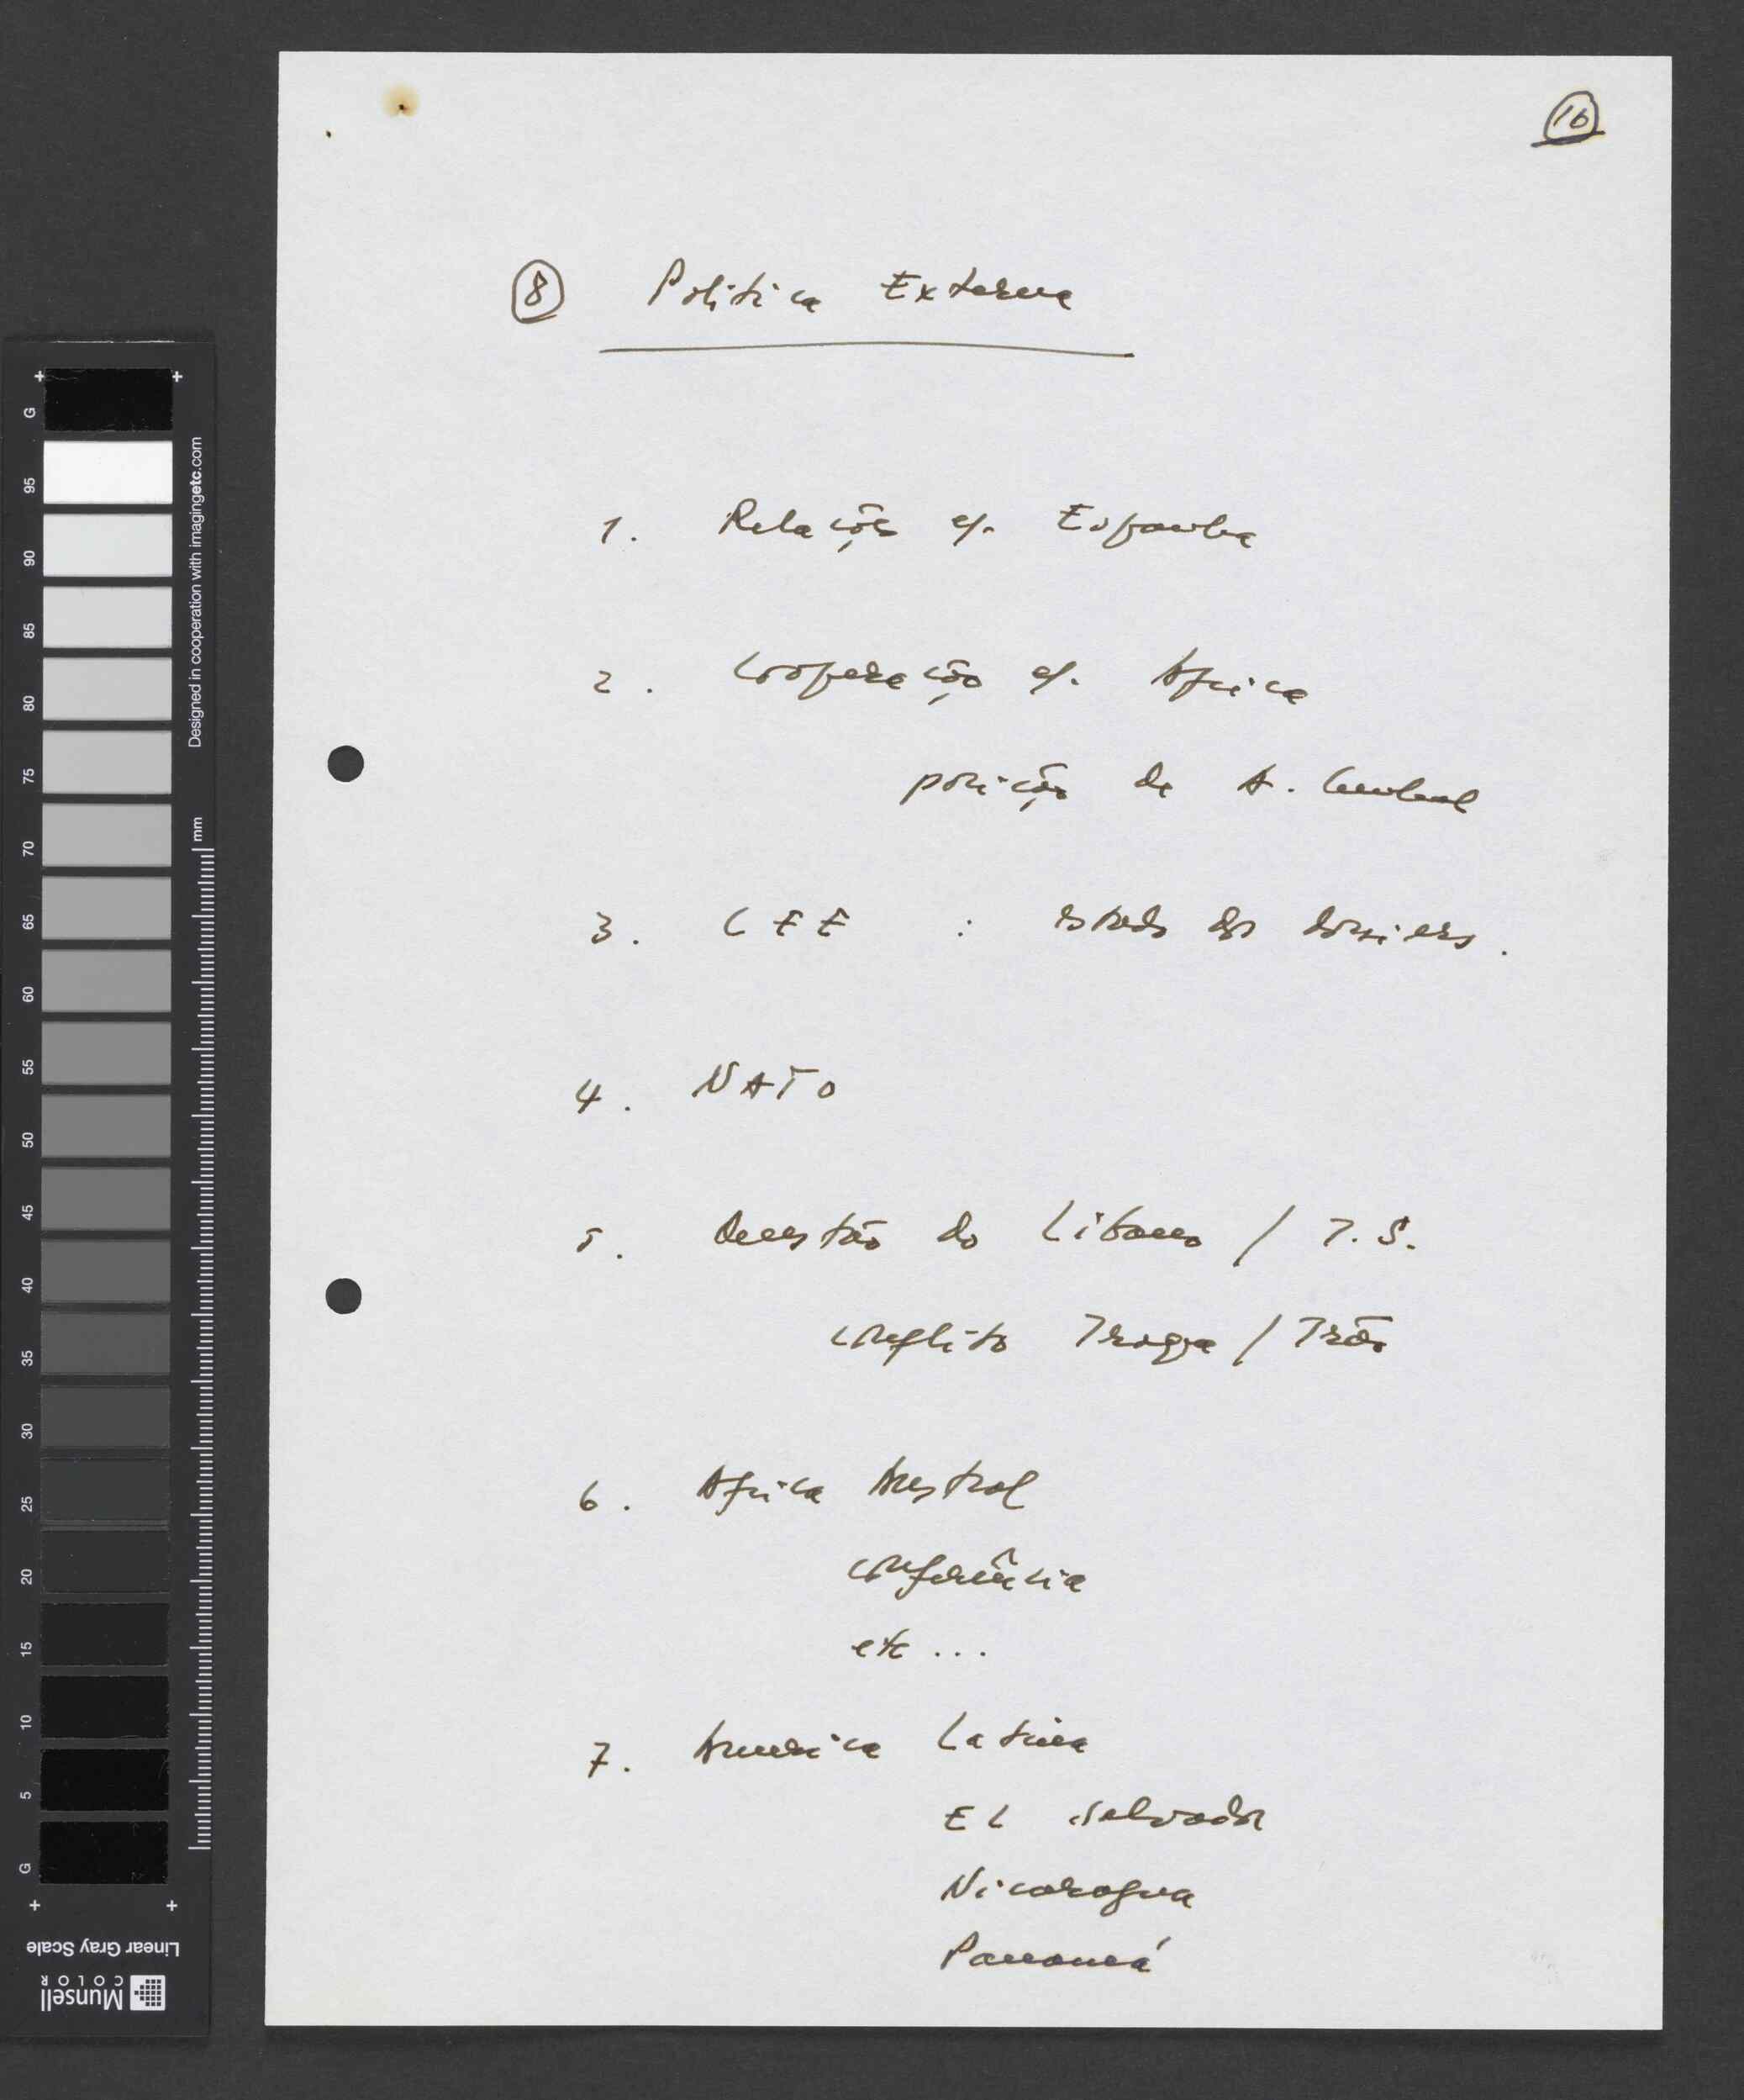 16
8 Politica Externa
1. Relações c/. Espanha
2. Cooperação c/. Africa
posição de A. Cunhal
3. CEE : estado dos dossiers.
4. NATO
5. Questão do Libano / I.S.
conflito Iraque / Irão
6. Africa Austral
conferência
etc ...
7. America Latina
EL Salvador
Nicaragua
Panamá
G
95
90
85
80
75
70
65
60
55
50
45
40
35
30
25
20
15
10
5
G
Designed in cooperation with imagingetc.com
mm
Linear Gray Scale
Munsell
COLOR